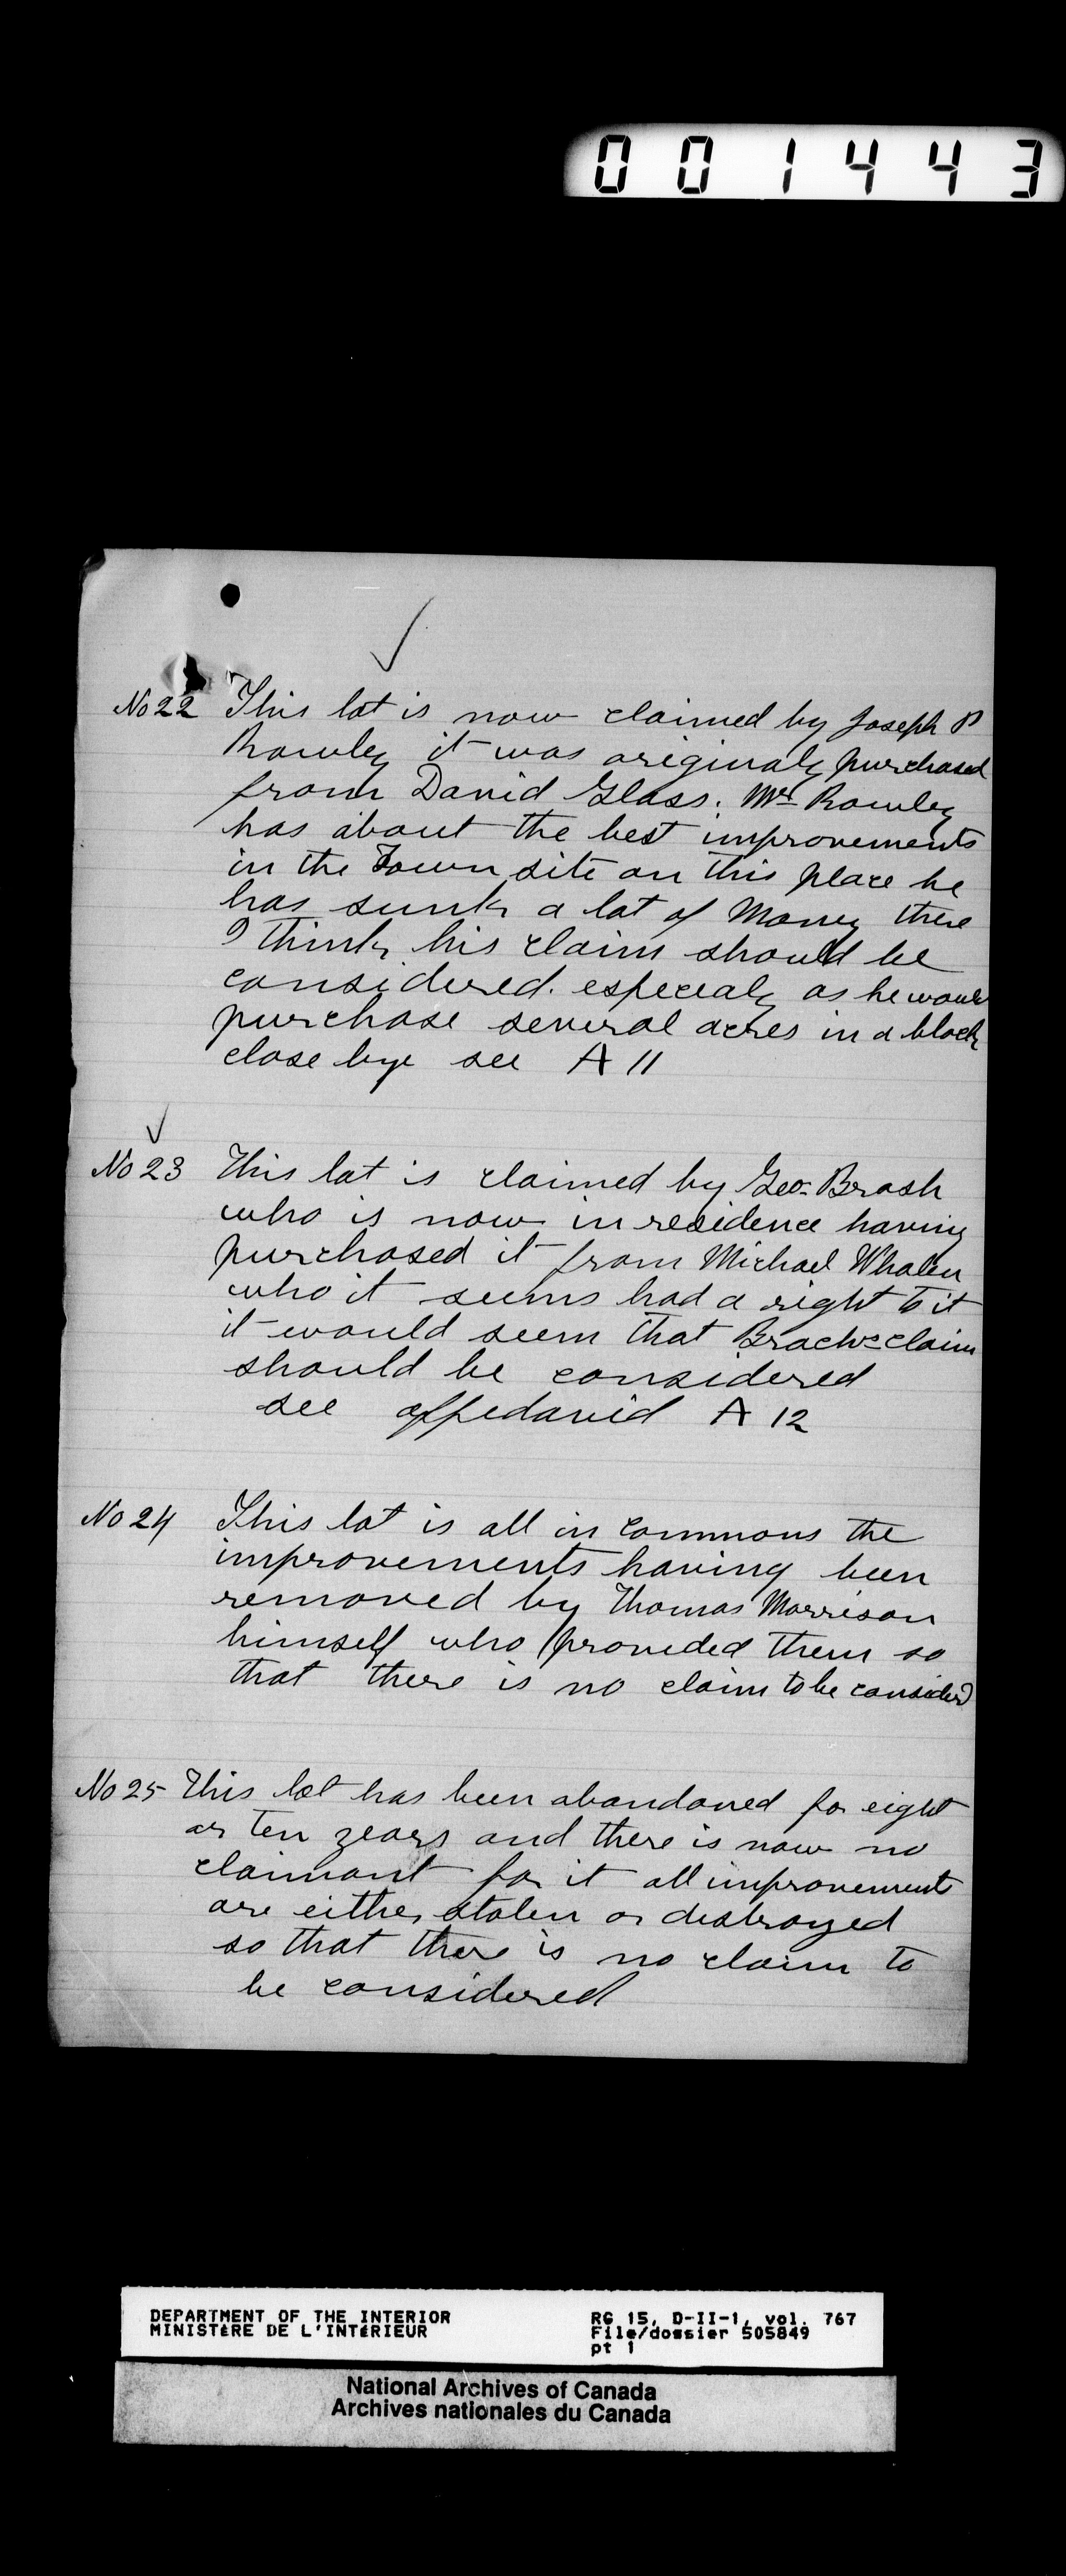 001443
No 22 This lot is now claimed by Joseph P
Rowley it was originaly purchased
from David Glass. Mr Rowley
has about the best improvements
in the Town site on this place he
has sunk a lot of Money there
I think his claim should be
considered. especialy as he would
purchase several acres in a block
close bye see A 11
No 23 This lot is claimed by Geo. Brash
who is now in residence having
purchased it from Michael Whalen
who it seems had a right to it
it would seem that claim
should be considered
see affedavid A 12
No 24 This lot is all in commons the
improvements having been
removed by Thomas Morrison
himself who provided them so
that there is no claim to be considerd
No 25 This lot has been abandoned for eight
or ten years and there is now no
claimant for it all improvements
are either stolen or destroyed
so that there is no claim to
be considered
DEPARTMENT OF THE INTERIOR RG 15, D-II-1, vol. 767
MINISTÈRE DE L'INTÉRIEUR File/dossier 505849
pt 1
National Archives of Canada
Archives nationales du Canada